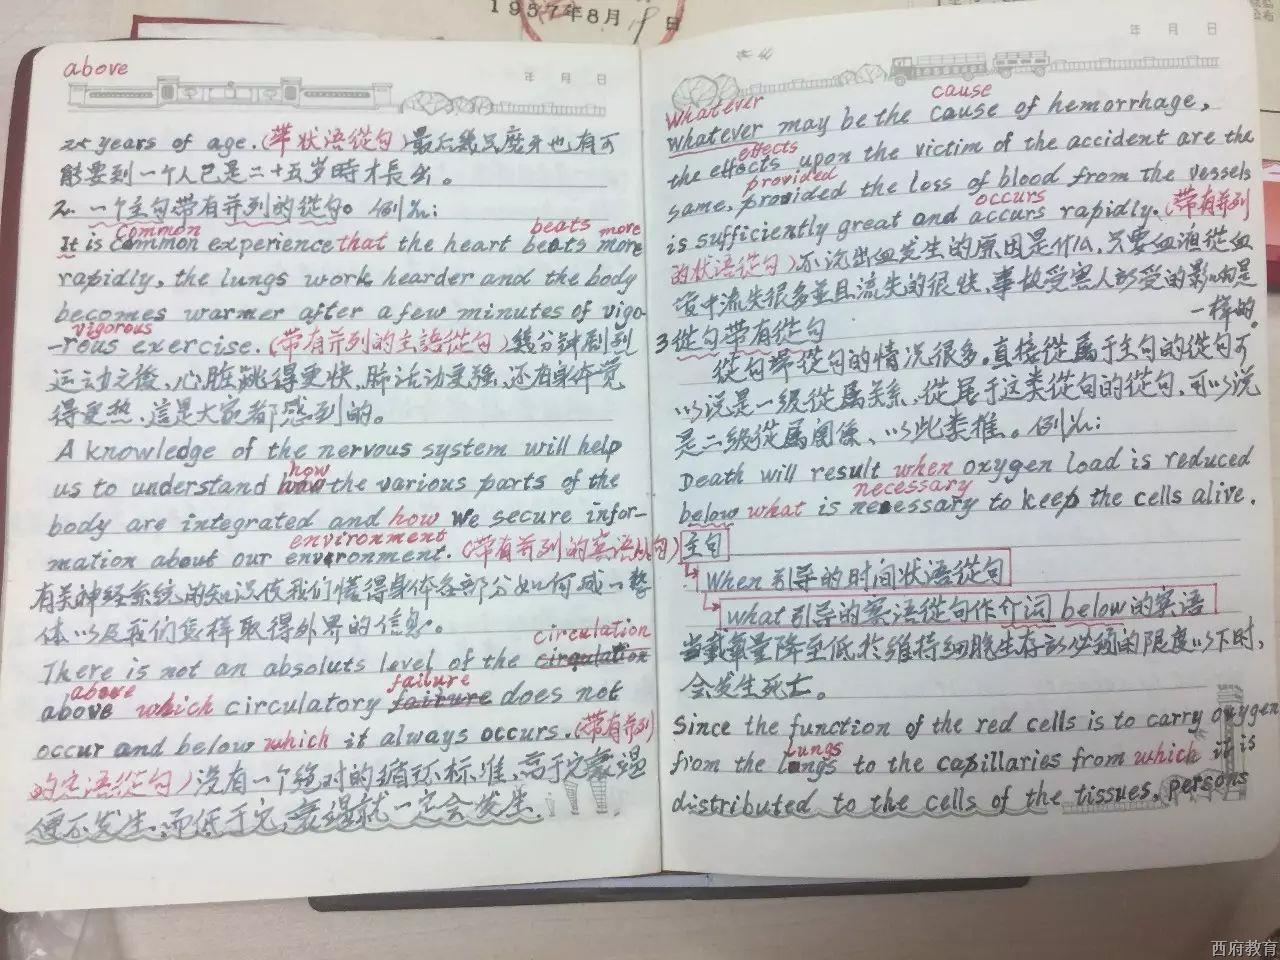 1957年8月19日
above
年 月 日
years of age. (带状语從句) 最后几只磨牙也有可
能要到一个人已是二十五岁時才長出。
2. 一个主句带有并列的從句。例如:
common beats more
It is common experience that the heart beats more
rapidly, the lungs work hearder and the body
becomes warmer after a few minutes of vigo-
vigorous
-rous exercise. (带有并列的主語從句) 幾分钟剧烈
运动之後, 心脏跳得更快, 肺活动更强, 还有身体觉
得更热, 這是大家都感到的。
A knowledge of the nervous system will help
how
us to understand how the various parts of the
body are integrated and how we secure infor-
environment
mation about our environment. (带有并列的宾语從句)
有关神经系统的知识使我们懂得身体各部分如何成一整
体以及我们怎样取得外界的信息。
circulation
There is not an absoluts level of the circulation
above failure
above which circulatory failure does not
occur and below which it always occurs. (带有并列
的定语從句) 没有一个绝对的循环标准, 高于它衰竭
便不发生, 而低于它, 衰竭就一定会发生.
年 月 日
Whatever cause
whatever may be the cause of hemorrhage,
effects
the effects upon the victim of the accident are the
provided
same, provided the loss of blood from the vessels
occurs
is sufficiently great and occurs rapidly. (带有并列
的状语從句) 不论出血发生的原因是什么, 只要血液從血
管中流失很多並且流失的很快, 事故受害人所受的影响是
一样的。
3 從句带有從句
從句带從句的情况很多。直接從属于主句的從句可
以说是一级從属关系, 從属于这类從句的從句, 可以说
是二级從属関係, 以此类推。例如:
Death will result when oxygen load is reduced
necessary
below what is necessary to keep the cells alive.
主句
When 引导的时间状语從句
what 引导的宾语從句作介词 below 的宾语
当载氧量降至低於維持細胞生存所必須的限度以下时,
会发生死亡。
Since the function of the red cells is to carry oxygen
lungs
from the lungs to the capillaries from which it is
distributed to the cells of the tissues, persons
西府教育